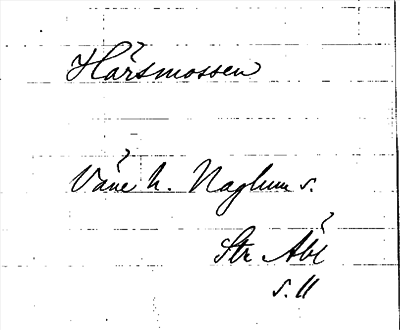 Härsmossen
Väne h. Naglum s.
Str Abl
s. 11